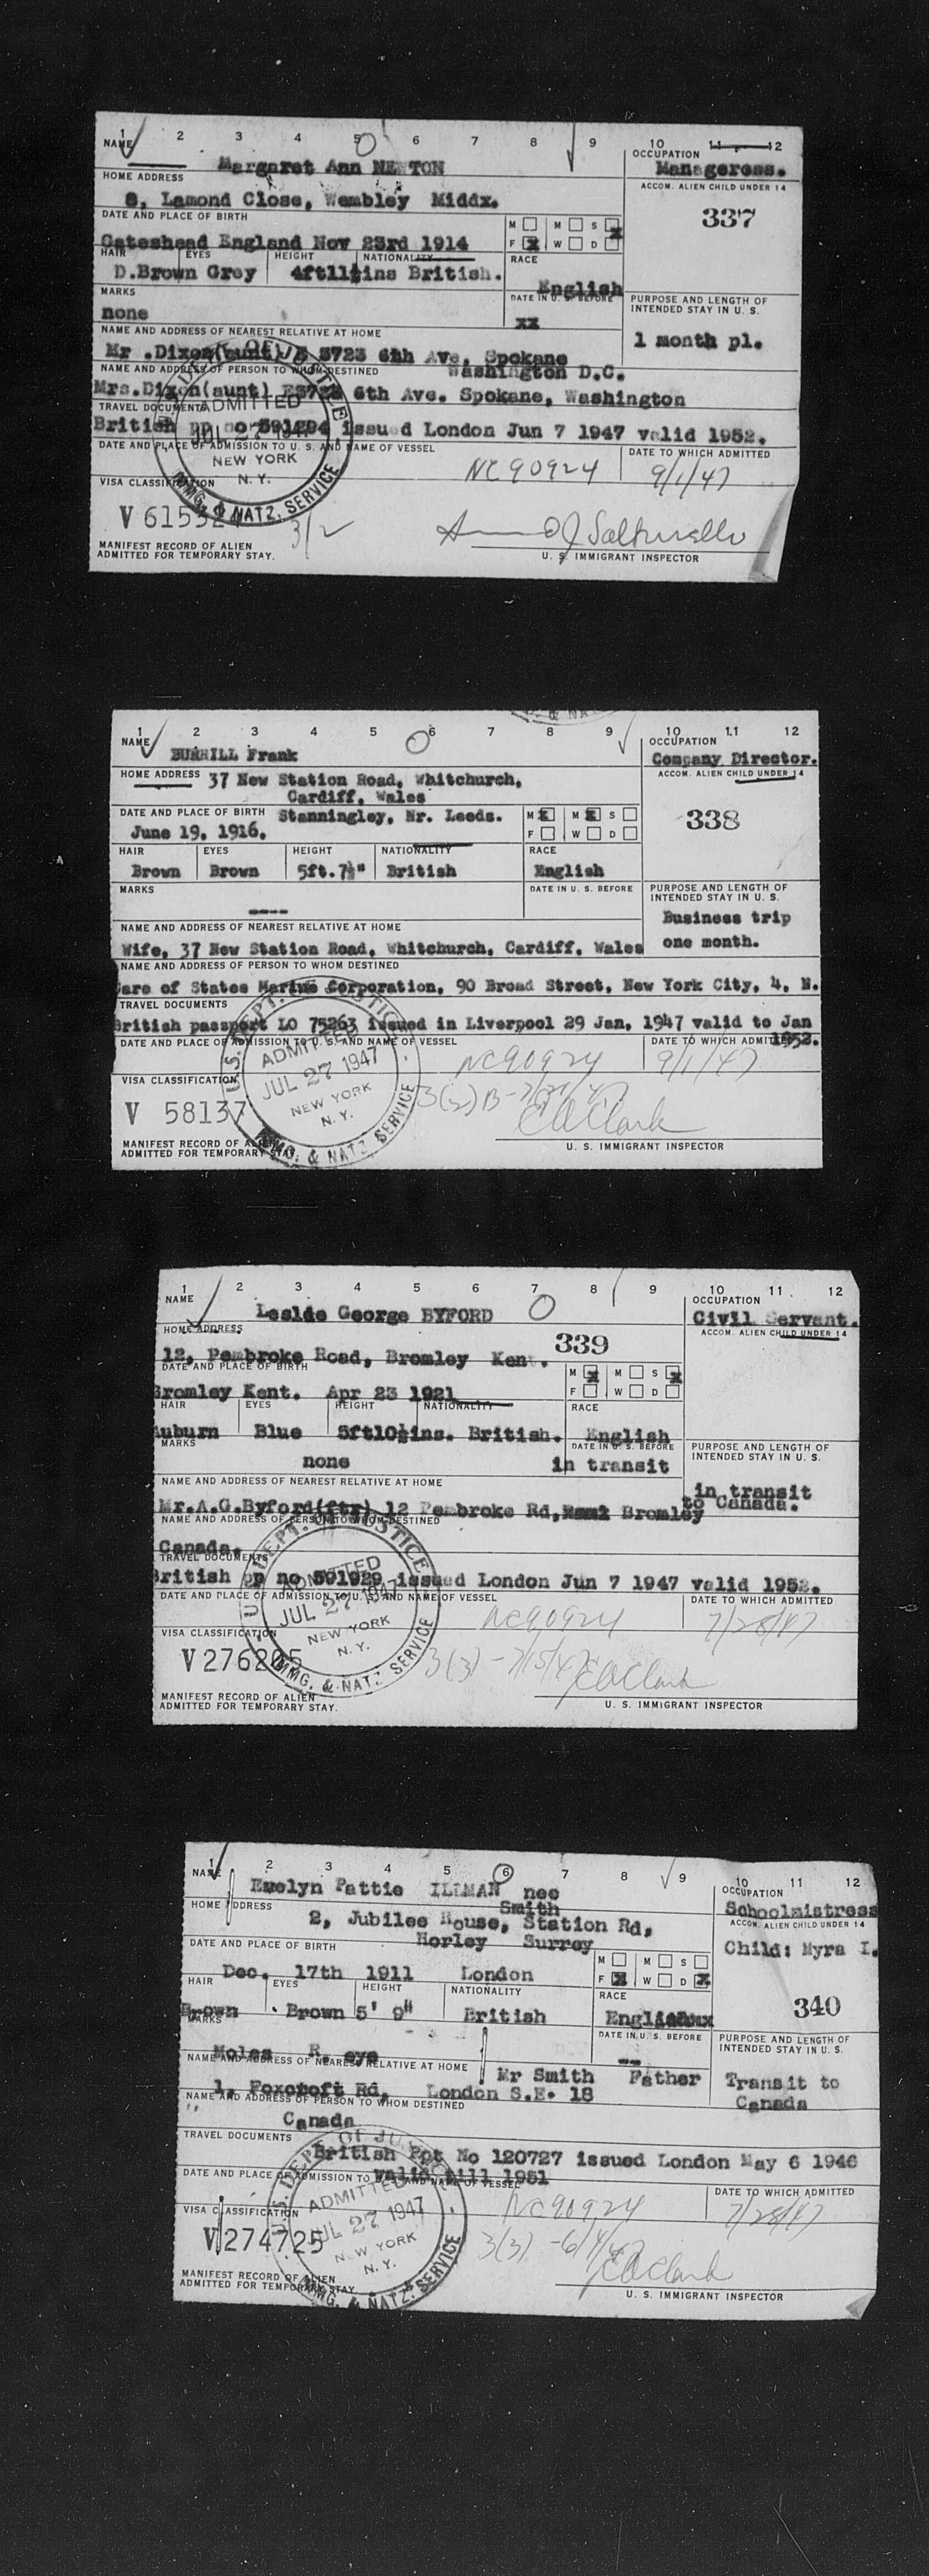 1 2 3 4 5 6 7 8 9 10 11 12
NAME Margaret Ann NEWTON
OCCUPATION Manageress.
HOME ADDRESS
ACCOM. ALIEN CHILD UNDER 14
8, Lamond Close, Wembley Middx.
337
DATE AND PLACE OF BIRTH
M M S X
Gateshead England Nov 23rd 1914
F X W D
HAIR EYES HEIGHT NATIONALITY RACE
D.Brown Grey 4ft11½ins British. English
MARKS DATE IN U. S. BEFORE PURPOSE AND LENGTH OF
INTENDED STAY IN U. S.
none xx
1 month pl.
NAME AND ADDRESS OF NEAREST RELATIVE AT HOME
Mr .Dixon(aunt) E 3723 6th Ave, Spokane
Washington D.C.
NAME AND ADDRESS OF PERSON TO WHOM DESTINED
Mrs.Dixon(aunt) E3723 6th Ave. Spokane, Washington
TRAVEL DOCUMENTS
British pp no 591294 issued London Jun 7 1947 valid 1952.
DATE AND PLACE OF ADMISSION TO U. S. AND NAME OF VESSEL DATE TO WHICH ADMITTED
NC90924 9/1/47
U.S. DEPT. OF JUSTICE
ADMITTED
JUL 27 1947
NEW YORK
N. Y.
IMMG. & NATZ. SERVICE
VISA CLASSIFICATION
V 61532
3/2
MANIFEST RECORD OF ALIEN
ADMITTED FOR TEMPORARY STAY.
U. S. IMMIGRANT INSPECTOR
1 2 3 4 5 6 7 8 9 10 11 12
NAME BURRILL Frank
OCCUPATION
Company Director.
HOME ADDRESS 37 New Station Road, Whitchurch,
Cardiff, Wales
ACCOM. ALIEN CHILD UNDER 14
338
DATE AND PLACE OF BIRTH Stanningley, Nr. Leeds.
June 19, 1916.
M X M X S
F W D
HAIR EYES HEIGHT NATIONALITY RACE
Brown Brown 5ft.7½" British English
MARKS DATE IN U. S. BEFORE PURPOSE AND LENGTH OF
INTENDED STAY IN U. S.
----
Business trip
one month.
NAME AND ADDRESS OF NEAREST RELATIVE AT HOME
Wife, 37 New Station Road, Whitchurch, Cardiff, Wales
NAME AND ADDRESS OF PERSON TO WHOM DESTINED
are of States Marine Corporation, 90 Broad Street, New York City, 4, N.
TRAVEL DOCUMENTS
British passport LO 75263 issued in Liverpool 29 Jan, 1947 valid to Jan
1952.
DATE AND PLACE OF ADMISSION TO U. S. AND NAME OF VESSEL DATE TO WHICH ADMITTED
NC90924 9/1/47
U.S. DEPT. OF JUSTICE
ADMITTED
JUL 27 1947
NEW YORK
N. Y.
IMMG. & NATZ SERVICE
VISA CLASSIFICATION
V 58137
C A Clark
MANIFEST RECORD OF ALIEN
ADMITTED FOR TEMPORARY STAY.
U. S. IMMIGRANT INSPECTOR
1 2 3 4 5 6 7 8 9 10 11 12
NAME Leslie George BYFORD
OCCUPATION
Civil Servant.
HOME ADDRESS
ACCOM. ALIEN CHILD UNDER 14
339
12, Pembroke Road, Bromley Kent.
DATE AND PLACE OF BIRTH
M X M S X
F W D
Bromley Kent. Apr 23 1921
HAIR EYES HEIGHT NATIONALITY RACE
Auburn Blue 5ft10½ins. British. English
MARKS DATE IN U. S. BEFORE PURPOSE AND LENGTH OF
INTENDED STAY IN U. S.
none in transit
in transit
to Canada.
NAME AND ADDRESS OF NEAREST RELATIVE AT HOME
Mr.A.G.Byford(ftr) 12 Pembroke Rd, Bromley
NAME AND ADDRESS OF PERSON TO WHOM DESTINED
Canada.
TRAVEL DOCUMENTS
British pp no 591929 issued London Jun 7 1947 valid 1952.
DATE AND PLACE OF ADMISSION TO U. S. AND NAME OF VESSEL DATE TO WHICH ADMITTED
NC90924 7/28/47
U.S. DEPT. OF JUSTICE
ADMITTED
JUL 27 1947
NEW YORK
N. Y.
IMMG. & NATZ SERVICE
VISA CLASSIFICATION
V 276205
C A Clark
MANIFEST RECORD OF ALIEN
ADMITTED FOR TEMPORARY STAY.
U. S. IMMIGRANT INSPECTOR
1 2 3 4 5 6 7 8 9 10 11 12
NAME Evelyn Pattie ILLMAN nee
Smith
OCCUPATION
Schoolmistress
HOME ADDRESS 2, Jubilee House, Station Rd,
Horley Surrey
ACCOM. ALIEN CHILD UNDER 14
Child: Myra I.
340
DATE AND PLACE OF BIRTH
M M S
F X W D X
Dec. 17th 1911 London
HAIR EYES HEIGHT NATIONALITY RACE
Brown Brown 5' 9" British English
MARKS DATE IN U. S. BEFORE PURPOSE AND LENGTH OF
INTENDED STAY IN U. S.
Moles R. eye --
NAME AND ADDRESS OF NEAREST RELATIVE AT HOME Mr Smith Father
Transit to
Canada
1, Foxcroft Rd, London S.E. 18
NAME AND ADDRESS OF PERSON TO WHOM DESTINED
Canada
TRAVEL DOCUMENTS
British Ppt No 120727 issued London May 6 1946
valid till 1951
DATE AND PLACE OF ADMISSION TO U. S. AND NAME OF VESSEL DATE TO WHICH ADMITTED
NC90924 7/28/47
U.S. DEPT. OF JUSTICE
ADMITTED
JUL 27 1947
NEW YORK
N. Y.
IMMG. & NATZ. SERVICE
VISA CLASSIFICATION
V 274725
C A Clark
MANIFEST RECORD OF ALIEN
ADMITTED FOR TEMPORARY STAY
U. S. IMMIGRANT INSPECTOR